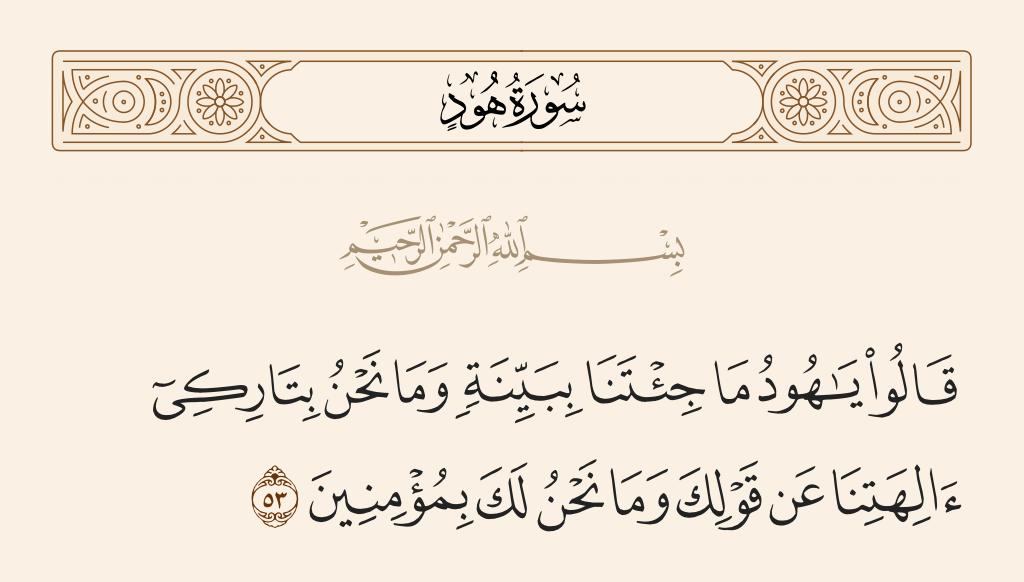 سُورَةُ هُودٍ
بِسْمِ ٱللَّهِ ٱلرَّحْمَٰنِ ٱلرَّحِيمِ
قَالُوا۟ يَـٰهُودُ مَا جِئْتَنَا بِبَيِّنَةٍ وَمَا نَحْنُ بِتَارِكِىٓ
ءَالِهَتِنَا عَن قَوْلِكَ وَمَا نَحْنُ لَكَ بِمُؤْمِنِينَ ٥٣